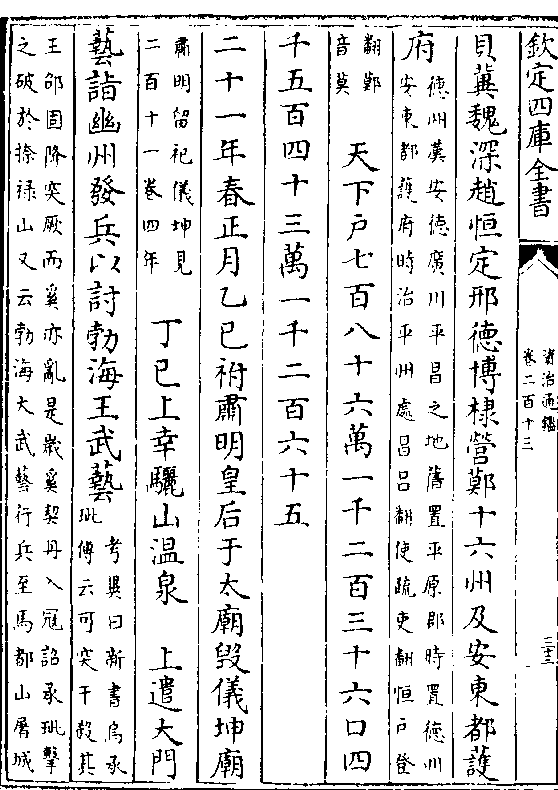 欽定四庫全書
資治通鑑
卷二百十三
二十三
貝冀魏深趙恒定邢德博棣營鄚十六州及安東都護
府
德州漢安德廣川平昌之地舊置平原郡時置德州
安東都護府時治平州處昌呂翻使疏吏翻恒戶登
翻鄚
音莫
天下戶七百八十六萬一千二百三十六口四
千五百四十三萬一千二百六十五
二十一年春正月乙巳祔肅明皇后于太廟毁儀坤廟
肅明留祀儀坤見
二百十一卷四年
丁巳上幸驪山温泉 上遣大門
藝詣幽州發兵以討勃海王武藝
考異曰新書烏承
玼傳云可突干殺其
王邵固降突厥而奚亦亂是歲奚契丹入寇詔承玼擊
之破於捺禄山又云勃海大武藝行兵至馬都山屠城